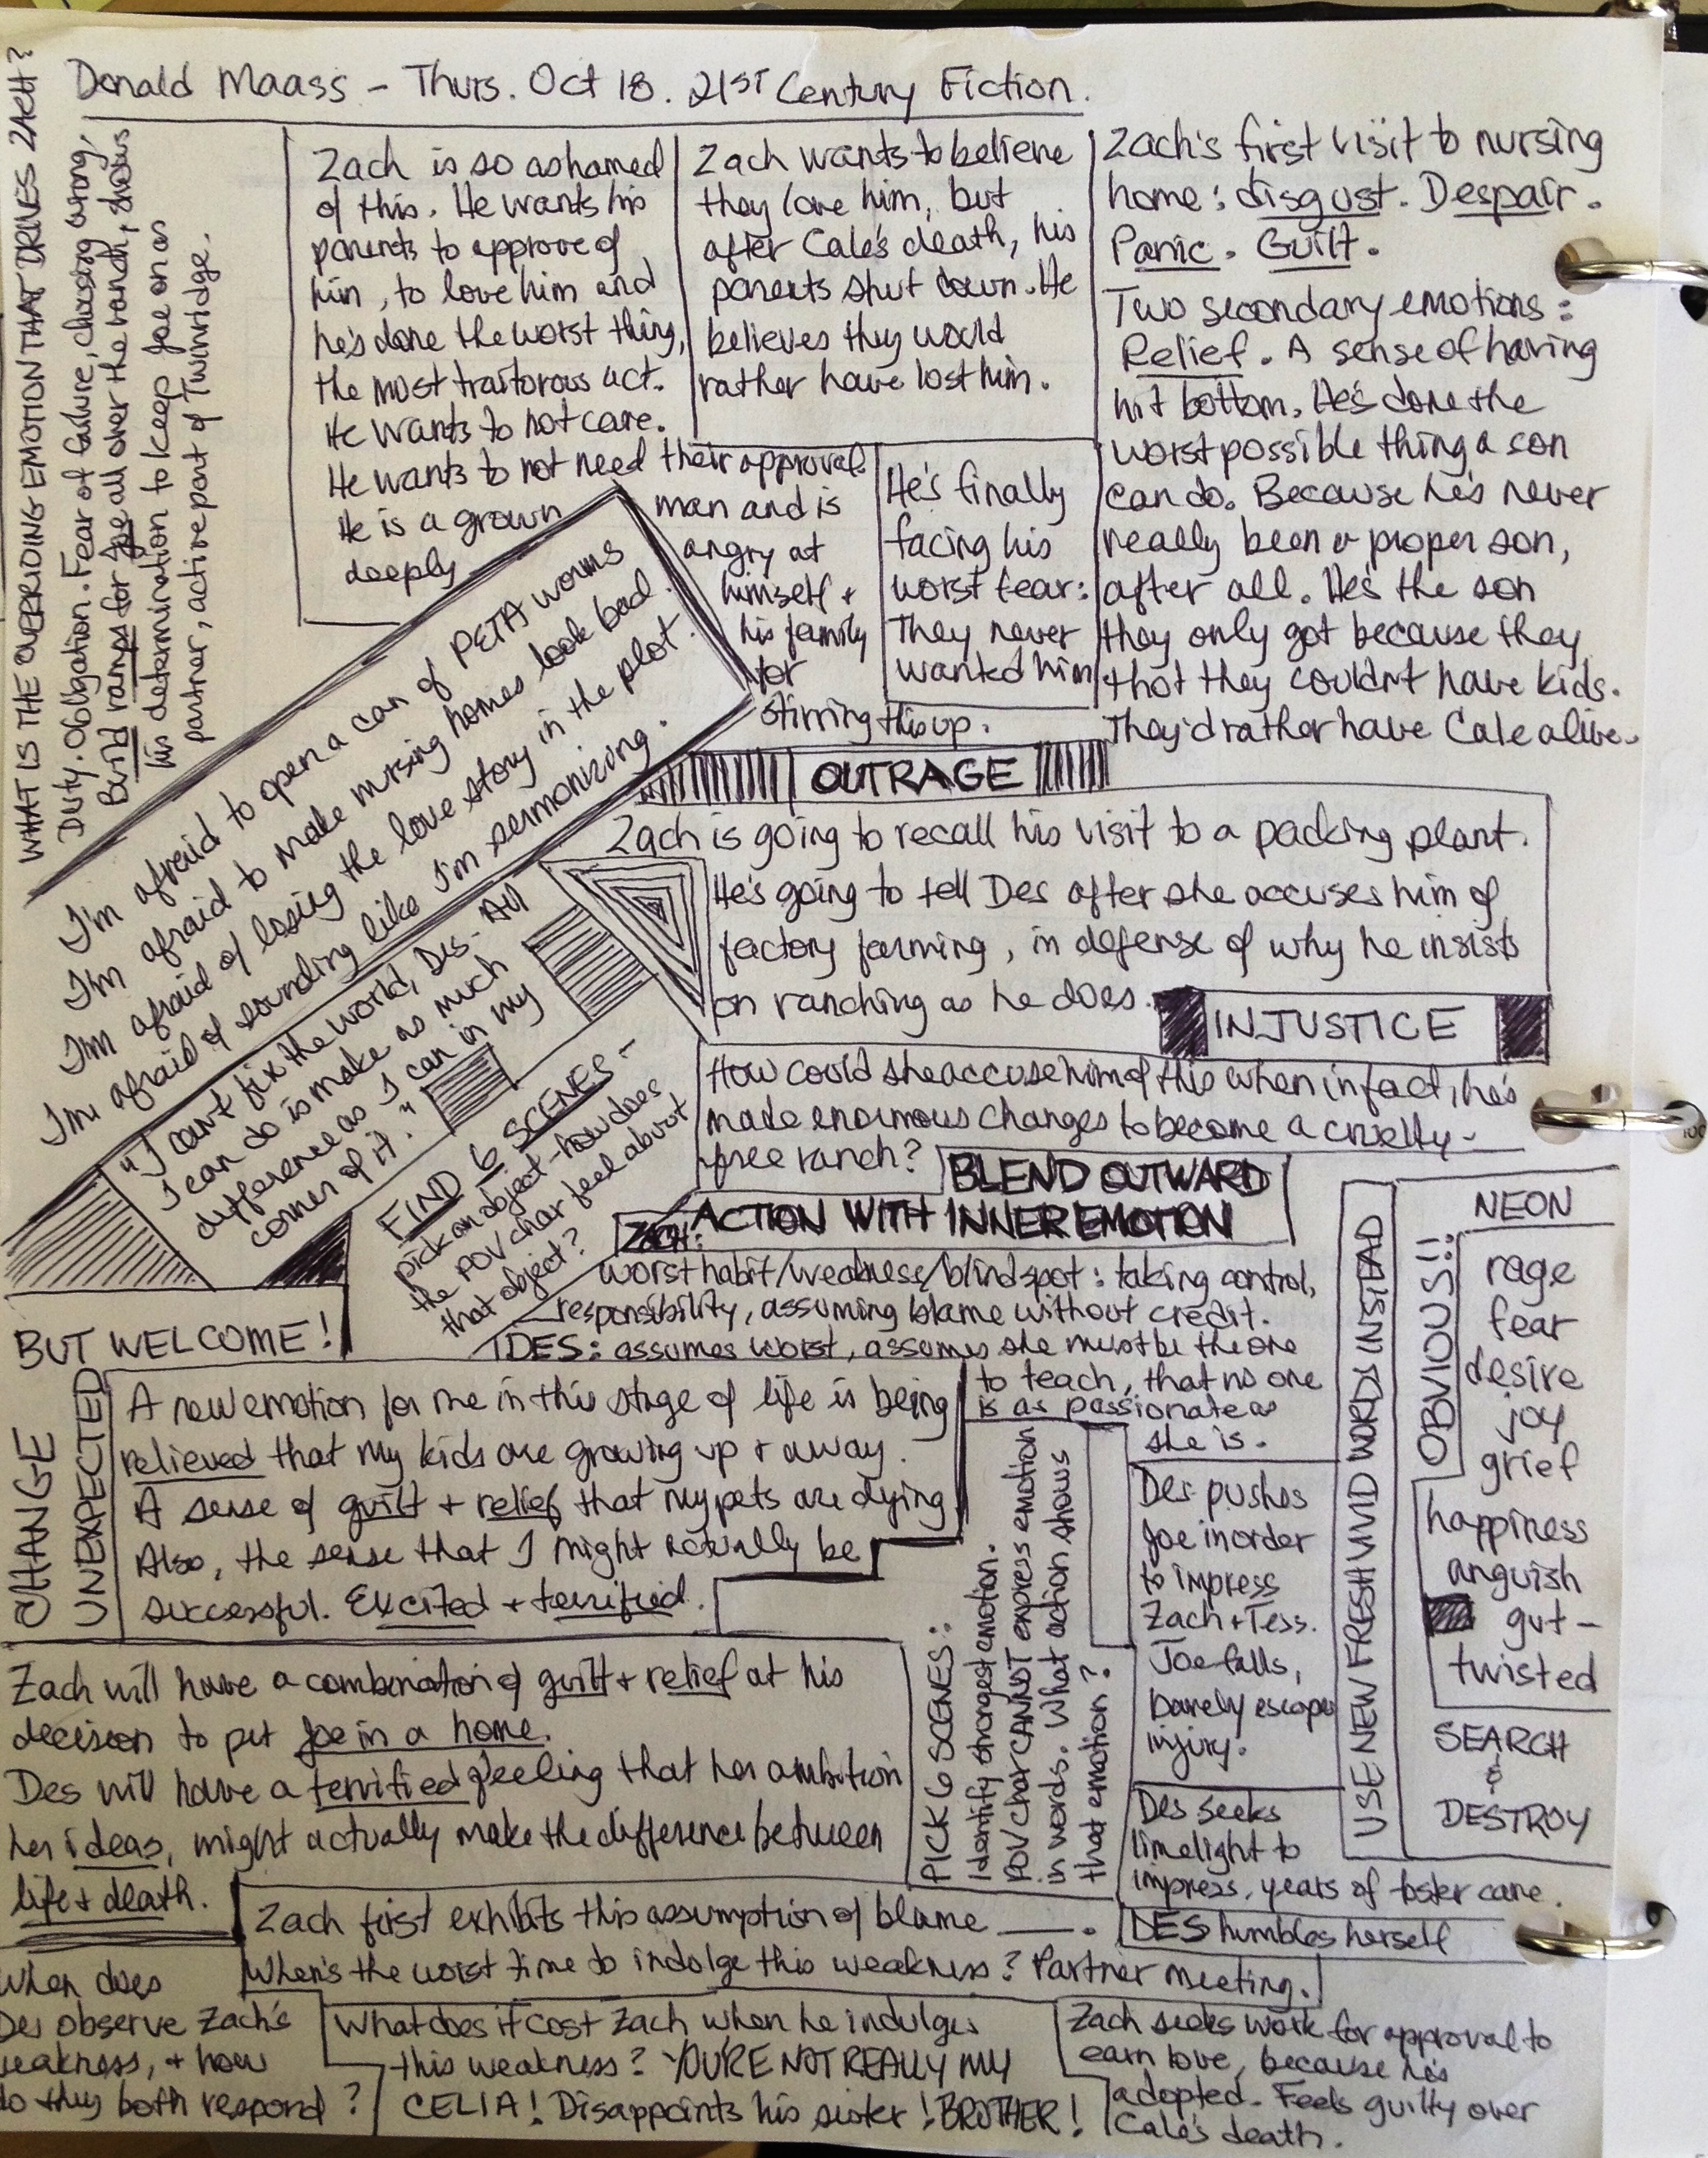 Donald Maass - Thurs. Oct 18. 21st Century Fiction.
WHAT IS THE OVERRIDING EMOTION THAT DRIVES ZACH?
Duty. Obligation. Fear of failure, choosing wrong.
Build ramps for Joe all over the ranch, shows
his determination to keep Joe on as
partner, active part of Twinridge.
Zach is so ashamed
of this. He wants his
parents to approve of
him, to love him and
he's done the worst thing,
the most traitorous act.
He wants to not care.
He wants to not need their approval.
He is a grown man and is
deeply angry at
himself +
his family
for
stirring this up.
Zach wants to believe
they love him, but
after Cale's death, his
parents shut down. He
believes they would
rather have lost him.
He's finally
facing his
worst fear:
They never
wanted him
Zach's first visit to nursing
home: disgust. Despair.
Panic. Guilt.
Two secondary emotions:
Relief. A sense of having
hit bottom. He's done the
worst possible thing a son
can do. Because he's never
really been a proper son,
after all. He's the son
they only got because they
thot they couldn't have kids.
They'd rather have Cale alive.
I'm afraid to open a can of PETA worms
I'm afraid to make nursing homes look bad.
I'm afraid of losing the love story in the plot.
I'm afraid of sounding like I'm sermonizing.
OUTRAGE
Zach is going to recall his visit to a packing plant.
He's going to tell Des after she accuses him of
factory farming, in defense of why he insists
on ranching as he does.
INJUSTICE
How could she accuse him of this when in fact, he's
made enormous changes to become a cruelty-
free ranch?
"I can't fix the world, Des. All
I can do is make as much
difference as I can in my
corner of it."
FIND 6 SCENES -
pick an object - how does
the POV char feel about
that object?
BLEND OUTWARD
ACTION WITH INNER EMOTION
ZACH:
worst habit/weakness/blind spot: taking control,
responsibility, assuming blame without credit.
DES: assumes worst, assumes she must be the one
to teach, that no one
is as passionate as
she is.
BUT WELCOME!
CHANGE
UNEXPECTED
A new emotion for me in this stage of life is being
relieved that my kids are growing up + away.
A sense of guilt + relief that my pets are dying
Also, the sense that I might actually be
successful. Excited + terrified.
Zach will have a combination of guilt + relief at his
decision to put Joe in a home.
Des will have a terrified feeling that her ambition
her ideas, might actually make the difference between
life + death.
PICK 6 SCENES:
Identify strongest emotion.
POV char CANNOT express emotion
in words. What action shows
that emotion?
Des pushes
Joe in order
to impress
Zach + Tess.
Joe falls,
barely escapes
injury.
Des seeks
limelight to
impress, years of foster care.
DES humbles herself
USE NEW FRESH VIVID WORDS INSTEAD
OBVIOUS!!
NEON
rage
fear
desire
joy
grief
happiness
anguish
gut-
twisted
SEARCH
&
DESTROY
Zach first exhibits this assumption of blame ____.
When's the worst time to indulge this weakness? Partner meeting.
When does
Des observe Zach's
weakness, + how
do they both respond?
What does it cost Zach when he indulges
this weakness? YOU'RE NOT REALLY MY
CELIA! Disappoints his sister! BROTHER!
Zach seeks work for approval to
earn love, because he's
adopted. Feels guilty over
Cale's death.